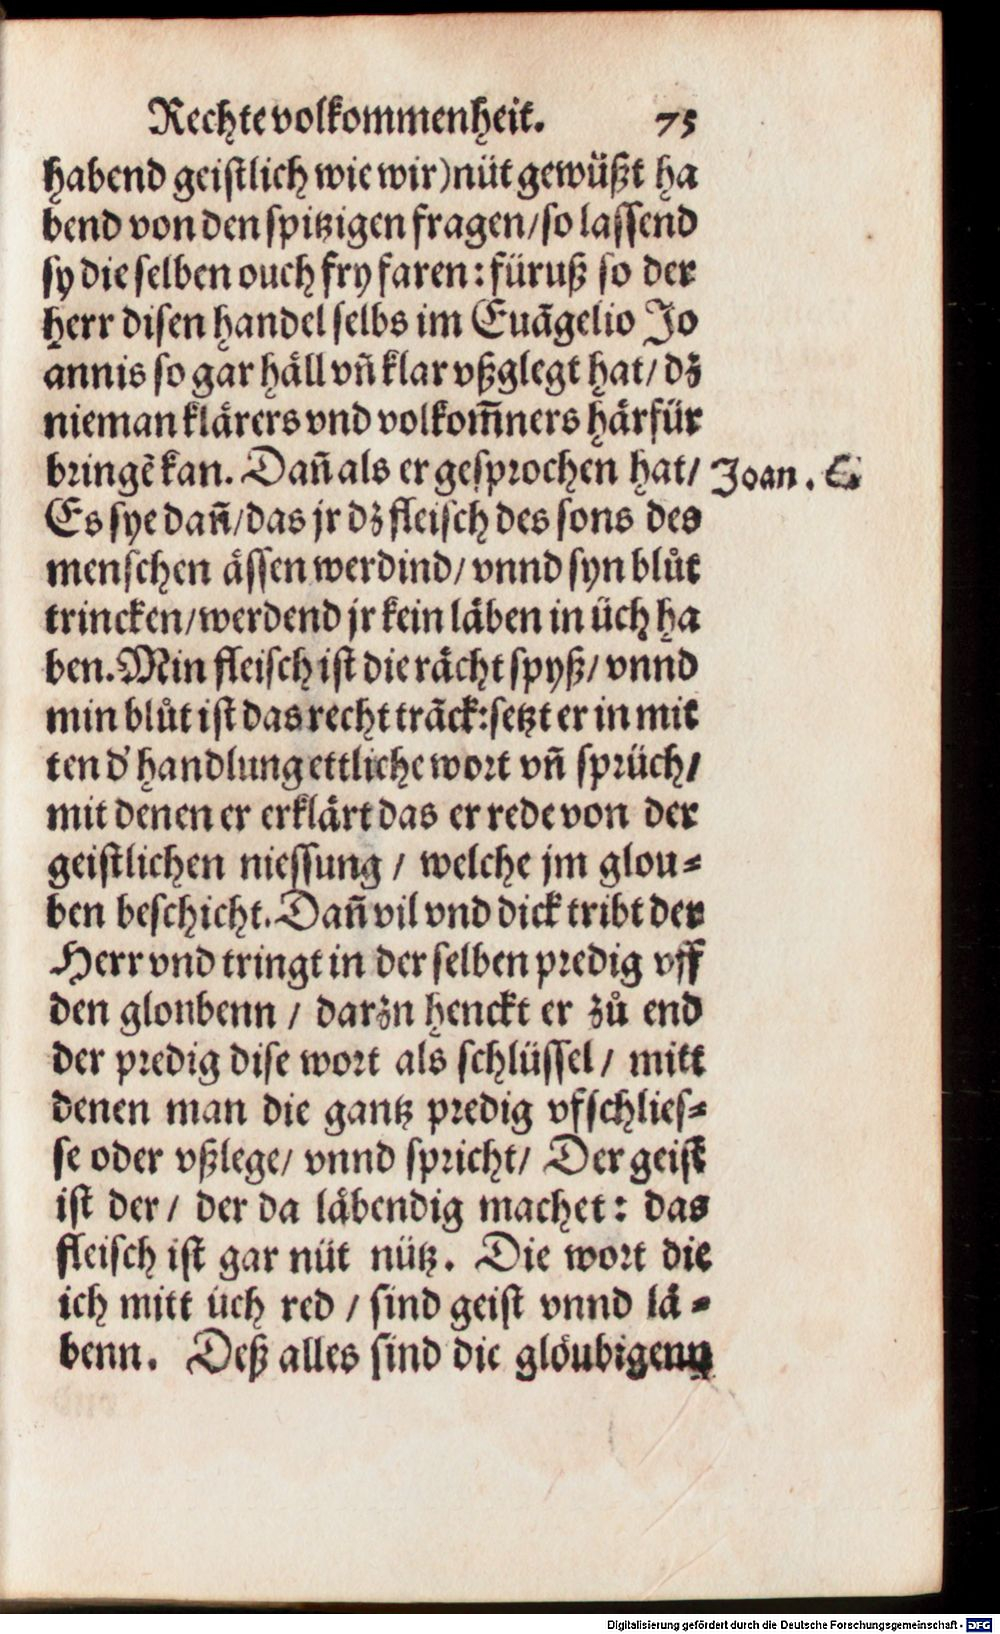 Rechte volkommenheit. 75
habend geistlich wie wir) nüt gewüßt ha
bend von den spitzigen fragen / so lassend
sy die selben ouch fry faren: füruß so der
herr disen handel selbs im Euãgelio Jo
annis so gar häll vñ klar vßglegt hat / dz
nieman klärers vnd volkom̃ners härfür
bringẽ kan. Dañ als er gesprochen hat / Joan. 6
Es sye dañ / das jr dz fleisch des sons des
menschen ässen werdind / vnnd syn blůt
trincken / werdend jr kein läben in üch ha
ben. Min fleisch ist die rächt spyß / vnnd
min blůt ist das recht trãck: setzt er in mit
ten d' handlung ettliche wort vñ sprüch /
mit denen er erklärt das er rede von der
geistlichen niessung / welche jm glou-
ben beschicht. Dañ vil vnd dick tribt der
Herr vnd tringt in der selben predig vff
den glonbenn / darzn henckt er zů end
der predig dise wort als schlüssel / mitt
denen man die gantz predig vfschlies-
se oder vßlege / vnnd spricht / Der geist
ist der / der da läbendig machet: das
fleisch ist gar nüt nütz. Die wort die
ich mitt üch red / sind geist vnnd lä-
benn. Deß alles sind die glöubigenn
Digitalisierung gefördert durch die Deutsche Forschungsgemeinschaft - DFG